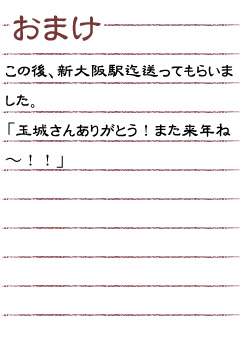 おまけ
この後、新大阪駅迄送ってもらいま
した。
「玉城さんありがとう！また来年ね
～！！」